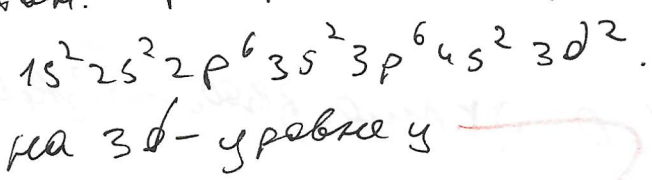 1s² 2s² 2p⁶ 3s² 3p⁶ 4s² 3d².
на 3d - уровне у